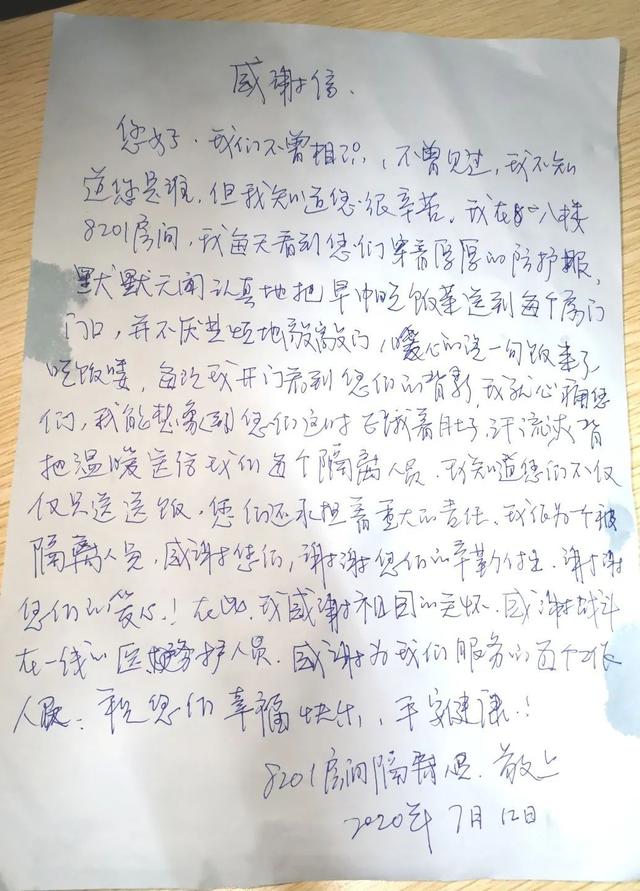 感谢信.
您好.我们不曾相识,不曾见过,我不知
道您是谁,但我知道您很辛苦,我在八楼
8201房间,我每天看到您们穿着厚厚的防护服,
默默无闻认真地把早中晚饭菜送到每个房门
门口,并不厌其烦地敲敲门,暖心的说一句饭来了,
吃饭喽,每次我开门看到您们的背影,我就心痛您
们,我能想象到您们这时正饿着肚子,汗流浃背
把温暖送给我们每个隔离人员.我知道您们不仅
仅只送送饭,您们还承担着重大的责任.我作为一个被
隔离人员,感谢您们,谢谢您们的辛勤付出.谢谢
您们的爱心!在此,我感谢祖国的关怀.感谢战斗
在一线的医务护人员.感谢为我们服务的每个工作
人员.祝您们幸福快乐,平安健康!
8201房间隔离人员.敬上
2020年7月12日